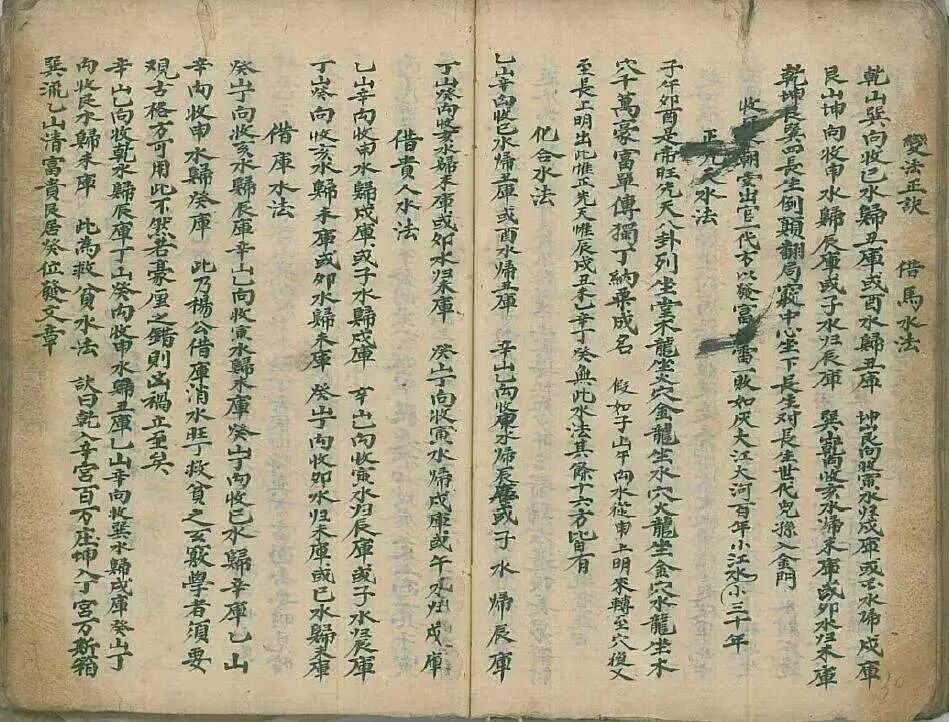 雙法正訣 借馬水法
乾山巽向收巳水歸丑庫或酉水歸丑庫 坤山艮向收寅水归戌庫或午水歸戌庫
艮山坤向收申水歸辰庫或子水归辰庫 巽山乾向收亥水歸未庫或卯水归未庫
乾坤艮巽四長生倒顛翻局竅中心坐下長生对長生世代兒孫入金門
收 朝堂出官一代方以發富 雷一敗如灰大江大河百年小江水小三十年
正 水法
子午卯酉是帝旺先天八卦列坐堂木龍坐火穴金龍坐水穴火龍坐金穴水龍坐木
穴千萬豪富單傳獨丁納粟成名 假如子山午向水從申上明來轉至穴後又
至長上明出此惟正先天惟辰戌丑未乙辛丁癸無此水法其餘十六方皆有
化合水法
乙山辛向收巳水歸丑庫或酉水歸丑庫 辛山乙向收 水歸辰庫或子水歸辰庫
丁山癸向收亥水歸未庫或卯水归未庫 癸山丁向收寅水歸戌庫或午水归戌庫
借貴人水法
乙山辛向收申水歸戌庫或子水歸戌庫 辛山乙向收寅水归辰庫或子水归辰庫
丁山癸向收亥水歸未庫或卯水歸未庫 癸山丁向收卯水归未庫或巳水歸未庫
借庫水法
癸山丁向收亥水歸辰庫辛山乙向收寅水歸未庫癸山丁向收巳水歸辛庫乙山
辛向收申水歸癸庫 此乃楊公借庫消水旺丁救貧之玄竅學者須要
覌古格方可用此不然若豪厘之錯則凶禍立至矣
辛山乙向收乾水歸辰庫丁山癸向收申水歸丑庫乙山辛向收巽水歸戌庫癸山丁
向收艮水歸未庫 此為救貧水法 訣曰乾入辛宮百万庄坤入丁宮万斯箱
巽流乙山清富貴艮居癸位發文章